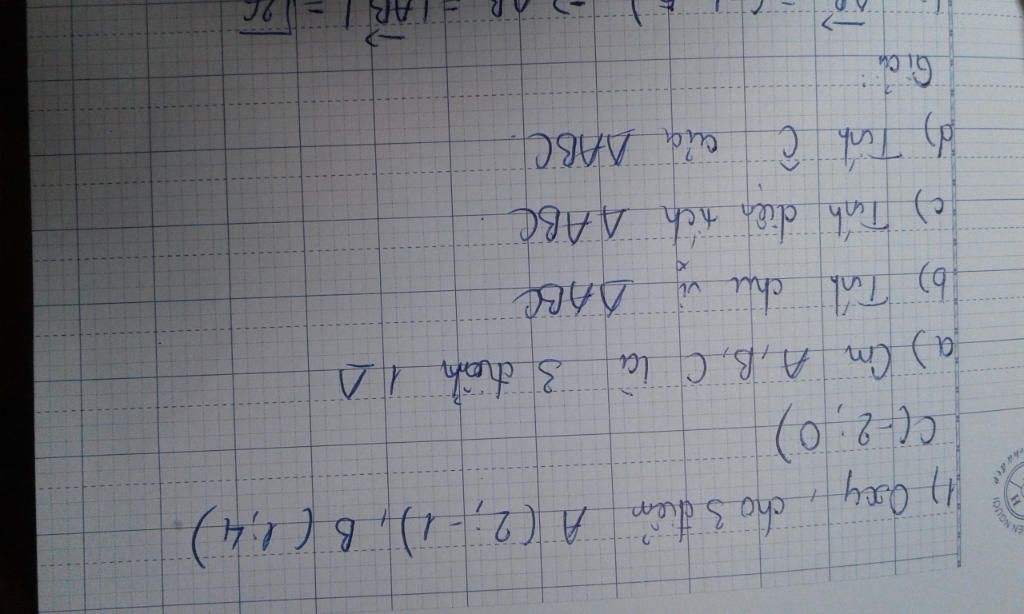 1) Oxy, cho 3 điểm A (2; -1), B (1; 4)
C(-2; 0)
a) Cm A, B, C là 3 đỉnh 1 Δ
b) Tính chu vi ΔABC
c) Tính diện tích ΔABC
d) Tính Ĉ của ΔABC
Giải: